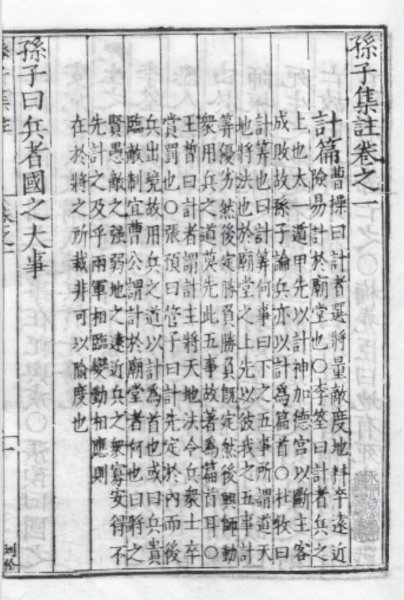 孫子集註卷之一
計篇
曹操曰計者選將量敵度地料卒遠近
險易計於廟堂也○李筌曰計者兵之
上也太一遁甲先以計神加德宮以斷主客
成敗故孫子論兵亦以計為篇首○杜牧曰
計算也曰計算何事曰下之五事所謂道天
地將法也於廟堂之上先以彼我之五事計
算優劣然後定勝負勝負既定然後興師動
衆用兵之道莫先此五事故著為篇首耳○
王晳曰計者謂計主將天地法令兵衆士卒
賞罰也○張預曰管子曰計先定於內而後
兵出境故用兵之道以計為首也或曰兵貴
臨敵制宜曹公謂計於廟堂者何也曰將之
賢愚敵之强弱地之遠近兵之衆寡安得不
先計之及乎兩軍相臨變動相應則
在於將之所裁非可以隃度也
孫子曰兵者國之大事